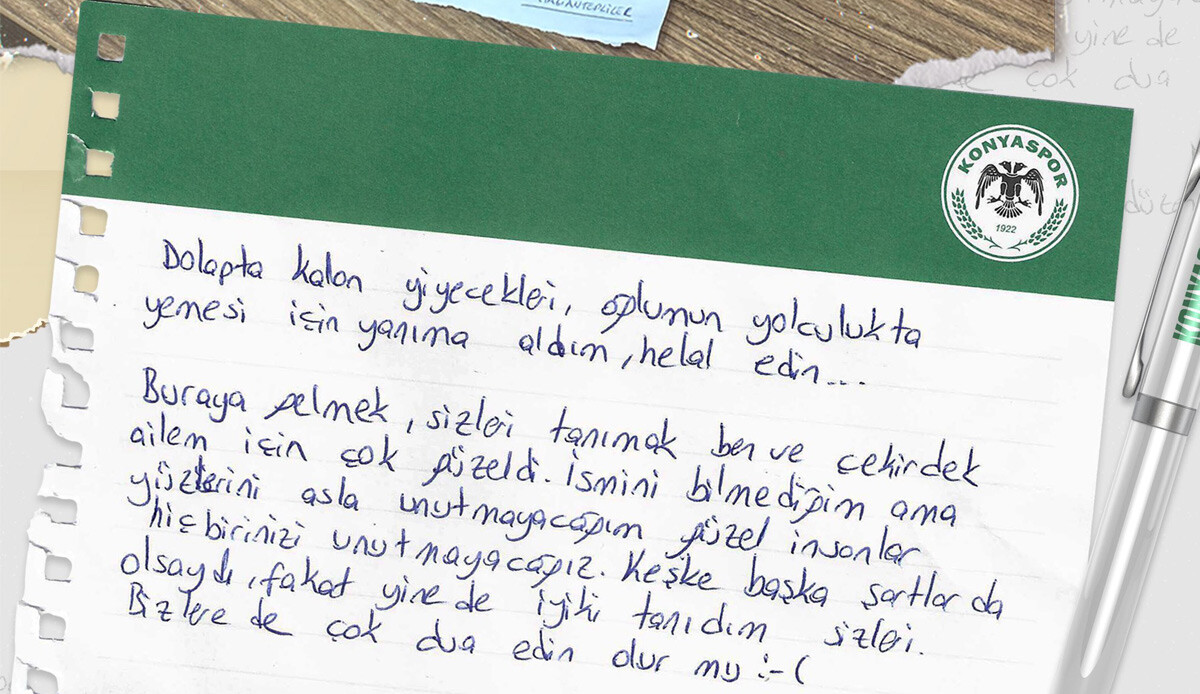 GAZİANTEPLİLER
yine de
çok dua
KONYASPOR
1922
Dolapta kalan yiyecekleri, oğlumun yolculukta
yemesi için yanıma aldım, helal edin...
Buraya gelmek, sizleri tanımak ben ve çekirdek
ailem için çok güzeldi. İsmini bilmediğim ama
yüzlerini asla unutmayacağım güzel insanlar
hiçbirinizi unutmayacağız. Keşke başka şartlarda
olsaydı, fakat yine de iyiki tanıdım sizleri.
Bizlere de çok dua edin olur mu :-(